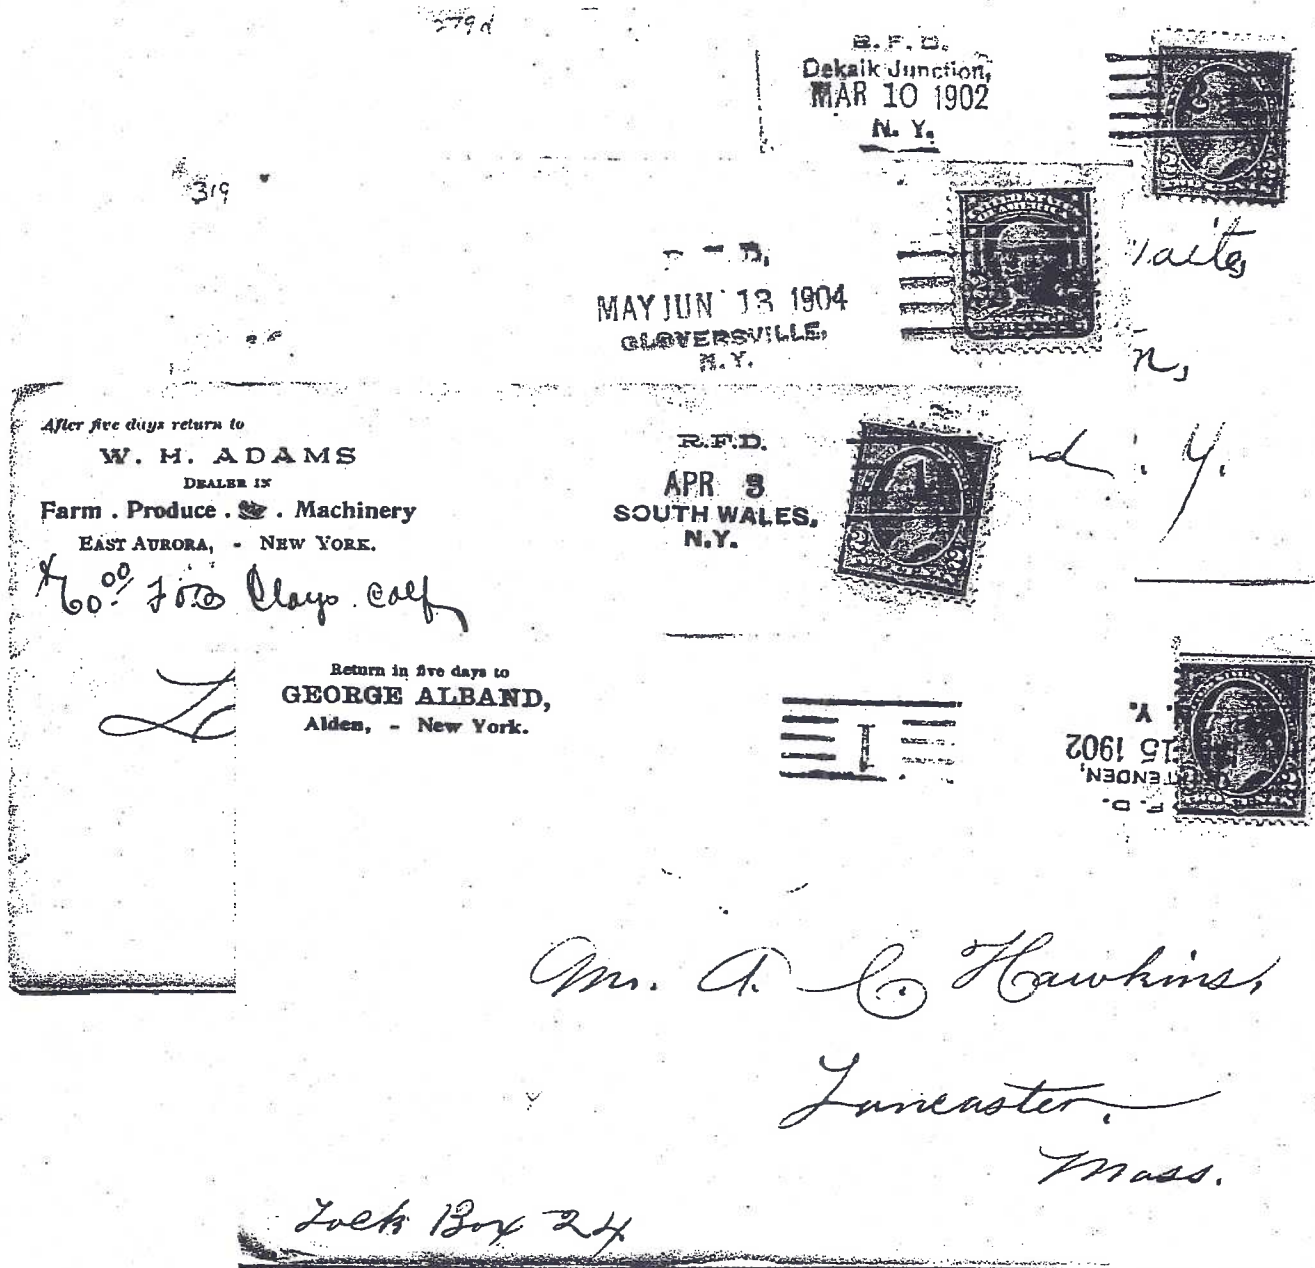 279d
R. F. D.
Dekalk Junction,
MAR 10 1902
N. Y.
319
D,
MAY JUN 13 1904
GLOVERSVILLE,
N.Y.
n,
d. Y.
After five days return to
W. H. ADAMS
DEALER IN
Farm . Produce . . Machinery
EAST AURORA, - NEW YORK.
60.00 for Clays calf
R.F.D.
APR 3
SOUTH WALES,
N.Y.
1
2 2
Return in five days to
GEORGE ALBAND,
Alden, - New York.
I
F. D.
TENDEN,
15 1902
N. Y.
Mr. A. C. Hawkins,
Lancaster,
Mass.
Lock Box 24